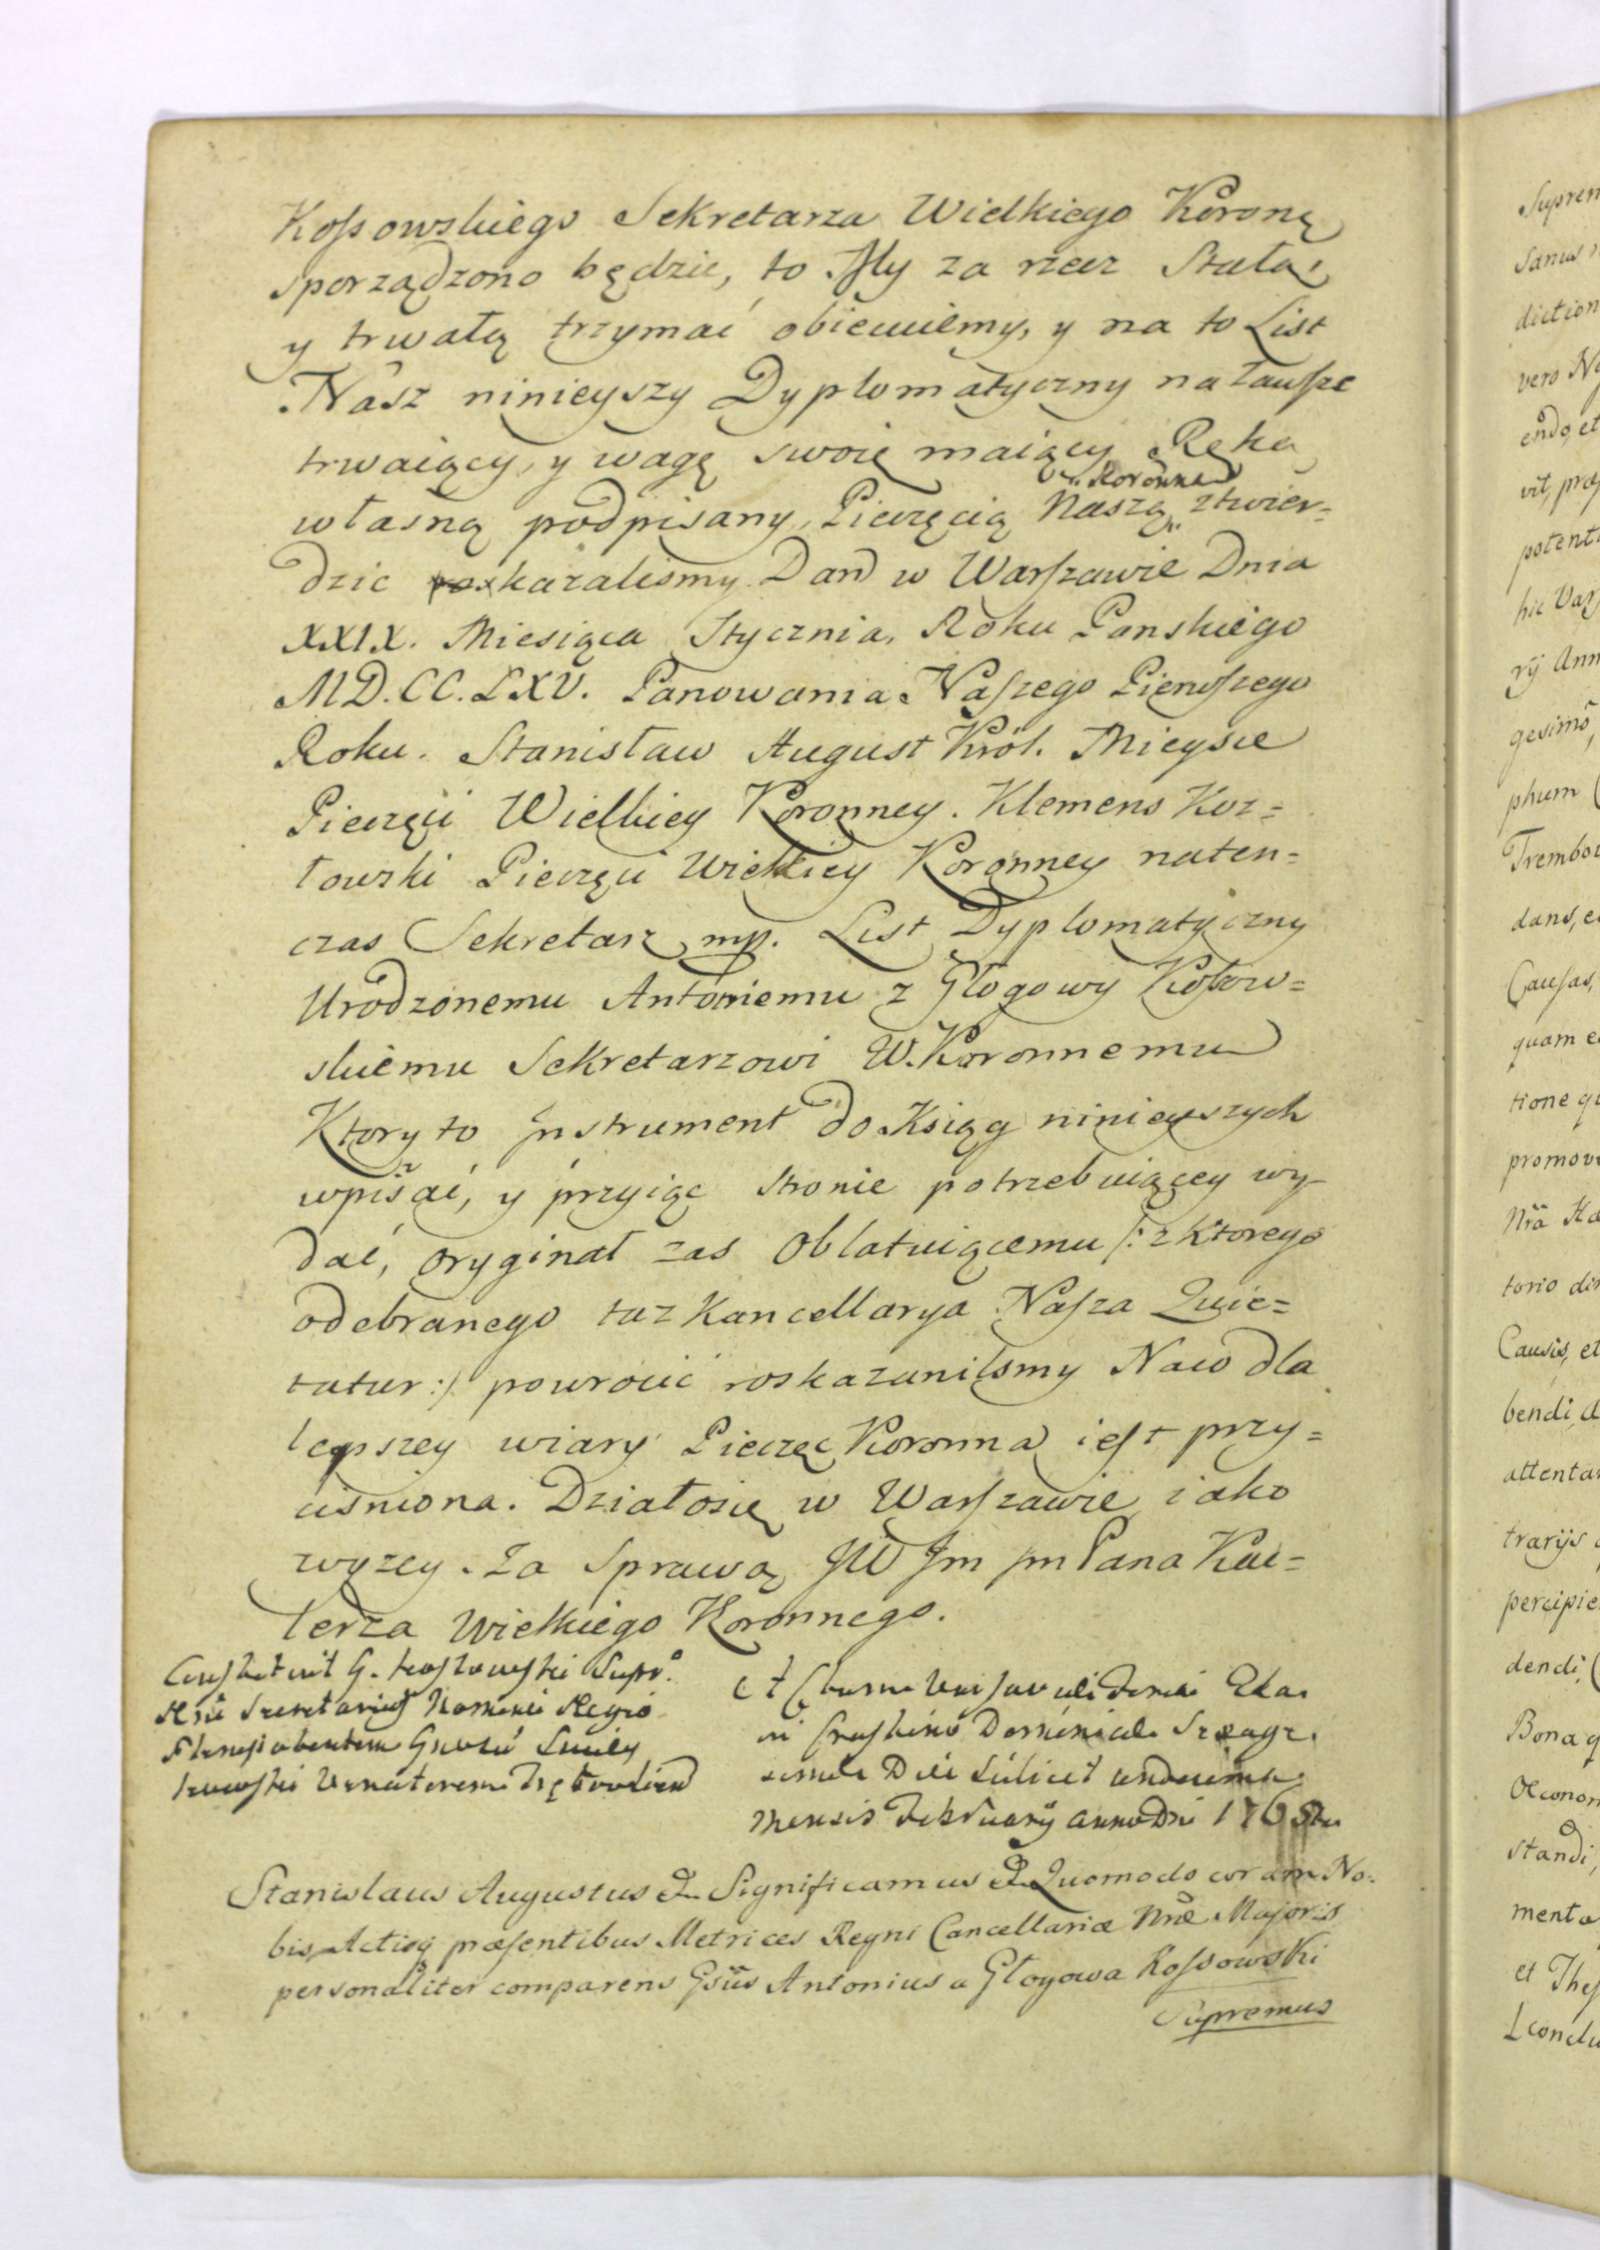 Kossowskiego Sekretarza Wielkiego Koronę
sporządzono będzie, to My za rzecz Stałą,
y trwałą trzymać obiecuiemy, y na to List
Nasz ninieyszy Dyplomatyczny na zawsze
trwaiący, y wagę swoię maiący Ręką
Koronną
własną podpisany, Pieczęcią Naszą ztwier=
dzic roskazalismy. Dan w Warszawie Dnia
XXIX. Miesiąca Stycznia, Roku Panskiego
MD.CC.LXV. Panowania Naszego Pierwszego
Roku. Stanisław August Król. Mieysce
Pieczęci Wielkiey Koronney. Klemens Koz=
łowski Pieczęci Wielkiey Koronney naten=
czas Sekretarz mp. List Dyplomatyczny
Urodzonemu Antoniemu z Głogowy Kossow=
skiemu Sekretarzowi W. Koronnemu
Ktory to Instrument do Ksiąg ninieyszych
wpisać, y przyiąc stronie potrzebuiącey wy-
dać, oryginał zas Oblatuiącemu /: z ktorego
odebranego taz Kancellarya Nasza Quie=
tatur :/ powrocić roskazanismy Naco dla
lepszey wiary Pieczęc Koronna iest przy=
cisniona. Działosię w Warszawie iako
wyzey. Za Sprawą JW Jm Pana Kac=
lerza Wielkiego Koronnego.
G. Supr.
Secretarius Nomine Regio
Et
Dominical
Die scilicet undecima
mensis February anno Dni 1765to
Stanislaus Augustus & Significamus & Quomodo coram No=
bis Actisq præsentibus Metrices Regni Cancellariæ Nræ Majoris
personaliter comparens Gsus Antonius a Głogowa Kossowski
Supremus
Supren
diction
vero
potent
gesimo
phum
Trembow
Causas,
quam
tione
promov
Causis, et
bendi,
attentar
percipie
dendi,
Bona
Oeconom
standi,
menta
et